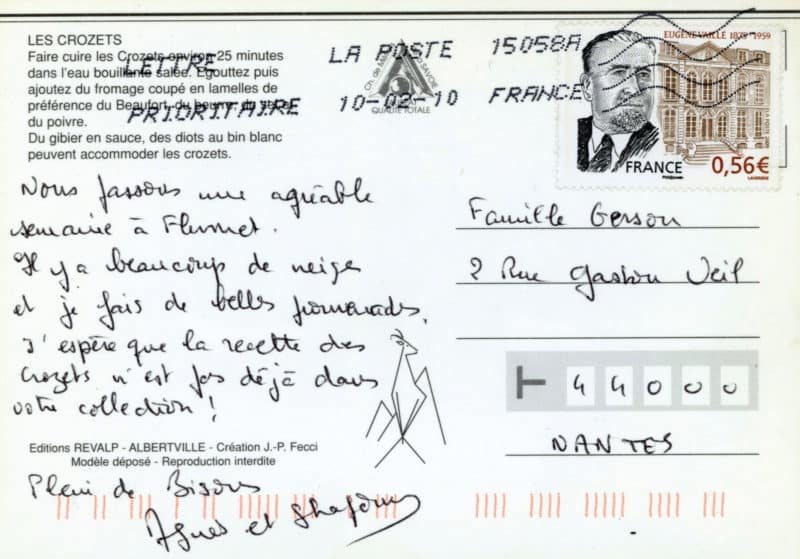 LES CROZETS
Faire cuire les Crozets environ 25 minutes
dans l'eau bouillante salée. Egouttez puis
ajoutez du fromage coupé en lamelles de
préférence du Beaufort, du beurre, du
du poivre.
Du gibier en sauce, des diots au bin blanc
peuvent accommoder les crozets.
LETTRE
PRIORITAIRE
LA POSTE 15058A
10-02-10 FRANCE
QUALITÉ TOTALE
EUGÈNE VAILLE 1875 - 1959
FRANCE 0,56€
Nous passons une agréable
semaine à Flumet.
Il y a beaucoup de neige
et je fais de belles promenades.
J'espère que la recette des
Crozets n'est pas déjà dans
votre collection !
Famille Gerson
2 Rue Gaston Veil
44000
NANTES
Editions REVALP - ALBERTVILLE - Création J.-P. Fecci
Modèle déposé - Reproduction interdite
Plein de Bisous
Agnes et